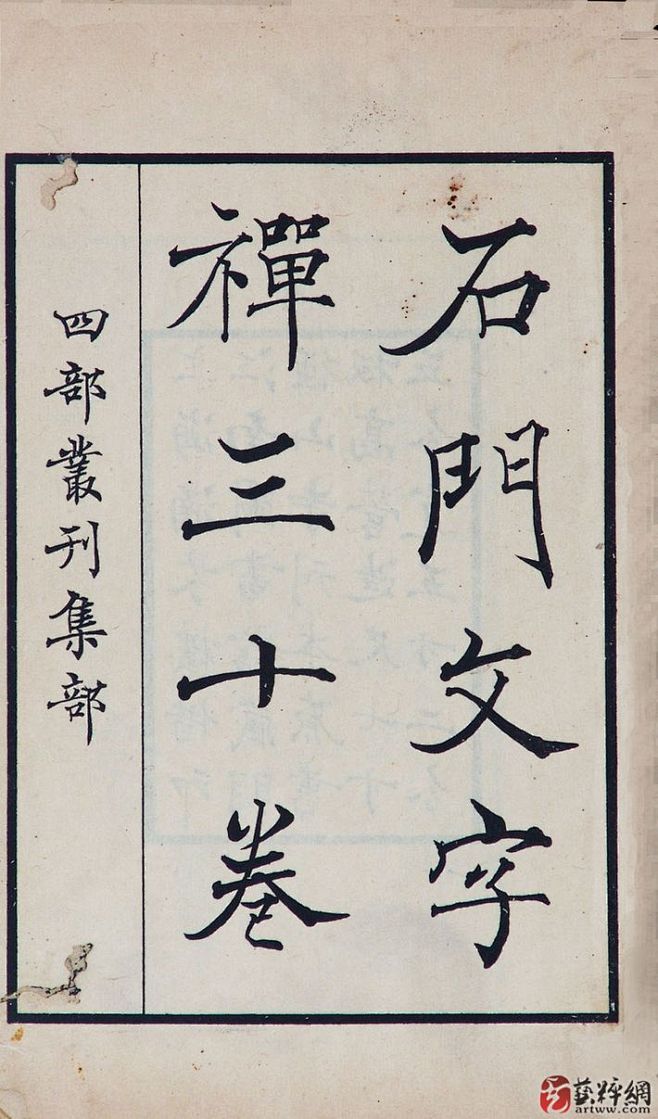 石門文字
禪三十卷
四部叢刊集部
藝粹網
artww.com